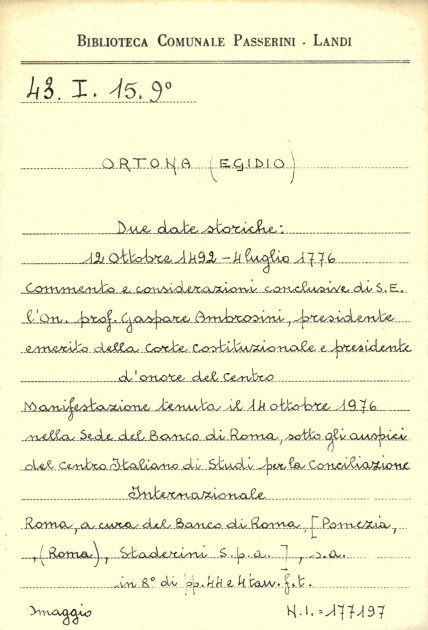 BIBLIOTECA COMUNALE PASSERINI - LANDI
43. I. 15. 9°
ORTONA (EGIDIO)
Due date storiche:
12 Ottobre 1492 - 4 luglio 1776
Commento e considerazioni conclusive di S.E.
l'On. prof. Gaspare Ambrosini, presidente
emerito della Corte Costituzionale e presidente
d'onore del Centro
Manifestazione tenuta il 14 ottobre 1976
nella Sede del Banco di Roma, sotto gli auspici
del Centro Italiano di Studi per la Conciliazione
Internazionale
Roma, a cura del Banco di Roma, [Pomezia,
(Roma), Staderini S.p.a.], s.a.
in 8° di pp. 44 e 4 tav. f.t.
Omaggio N.I. = 177197